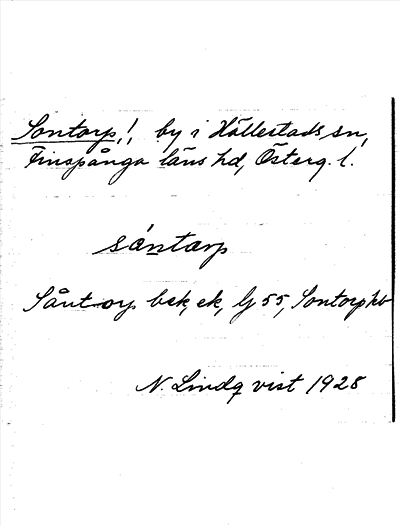 Sontorp!, by i Hällestads sn,
Finspånga läns hd, Österg. l.
såntårp
Såntorp bek, ek, lj 55, Sontorp kb
N. Lindqvist 1928